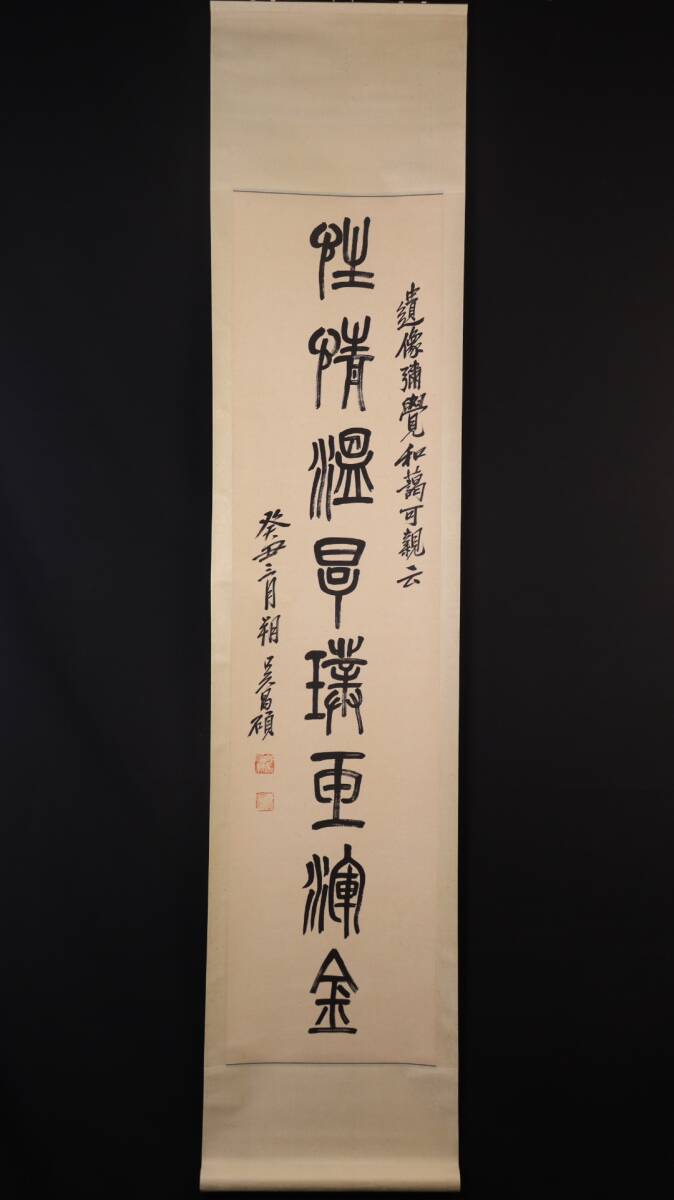 遺像彌覺和藹可親云
性情溫㫗璞渾金
癸丑三月朔 吳昌碩